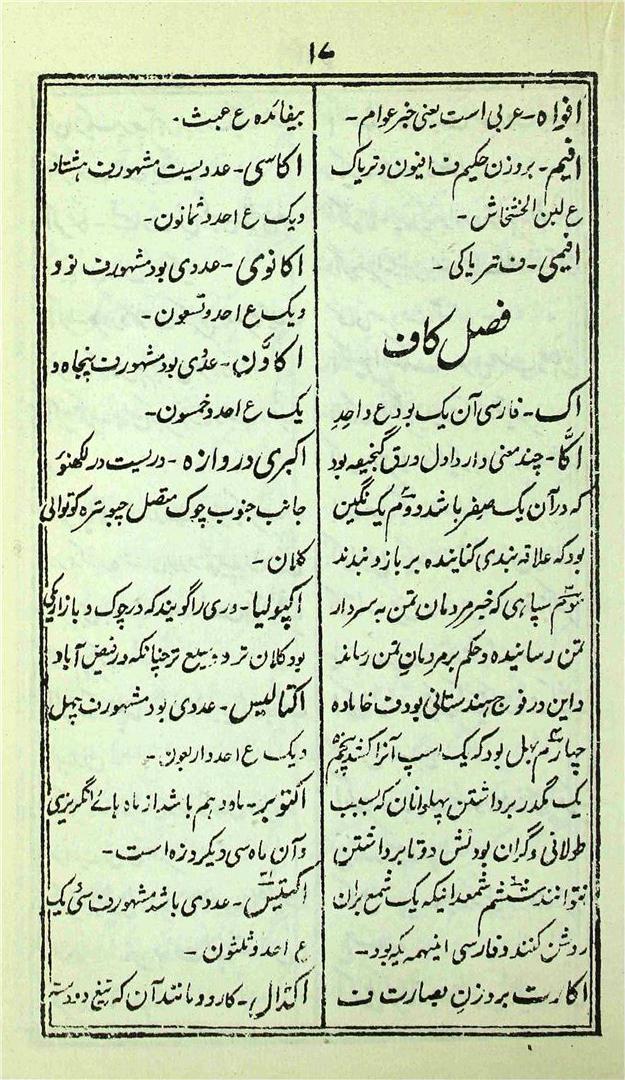 ۱۷
افواہ - عربی است یعنی خبر عوام -
افیم - بر وزن حکیم ف افیون و تریاک
ع لبن الخشخاش -
افیمی - ف تریاکی -
فصل کاف
اک - فارسی آن یک بود ع واحد
اکّا - چند معنی دارد اول ورق گنجیفہ بود
کہ در آن یک صفر باشد دوم یک نگین
بود کہ علاقہ بندی کنانیدہ بر بازو بندند
سوم سپاہی کہ خبر مردمان تمن بہ سردار
تمن رسانیدہ و حکم بر مردمان تمن رساند
و این در فوج ہندستانی بود ف خامادہ
چہارم بہل بود کہ یک اسپ آنرا کشد پنجم
یک مگدر برداشتن پہلوانان کہ بسبب
طولانی و گران بودنش دو تا برداشتن
نتوانند ششم شمعدانیکہ یک شمع بران
روشن کنند و فارسی اینہمہ یکہ بود -
اکارت بر وزن بصارت ف
بیفائدہ ع عبث -
اکاسی - عددیست مشہور ف ہشتاد
و یک ع احد و ثمانون -
اکانوی - عددی بود مشہور ف نود و
و یک ع احد و تسعون -
اکاون - عددی بود مشہور ف پنجاہ و
یک ع احد و خمسون -
اکبری دروازہ - دریست در لکھنؤ
جانب جنوب چوک متصل چبوترہ کوتوالی
کلان -
اکپولیا - دری را گویند کہ در چوک و بازار
بود کلان تر و وسیع تر چنانکہ در فیض آباد
اکتالیس - عددی بود مشہور ف چہل
و یک ع احد و اربعون -
اکتوبر - ماہ دہم باشد از ماہ ہائے انگریزی
و آن ماہ سی و یک روزہ است -
اکتیس - عددی باشد مشہور ف سی و یک
ع احد و ثلثون -
اکدال - کارد و مانند آن کہ تیغ و دستہ